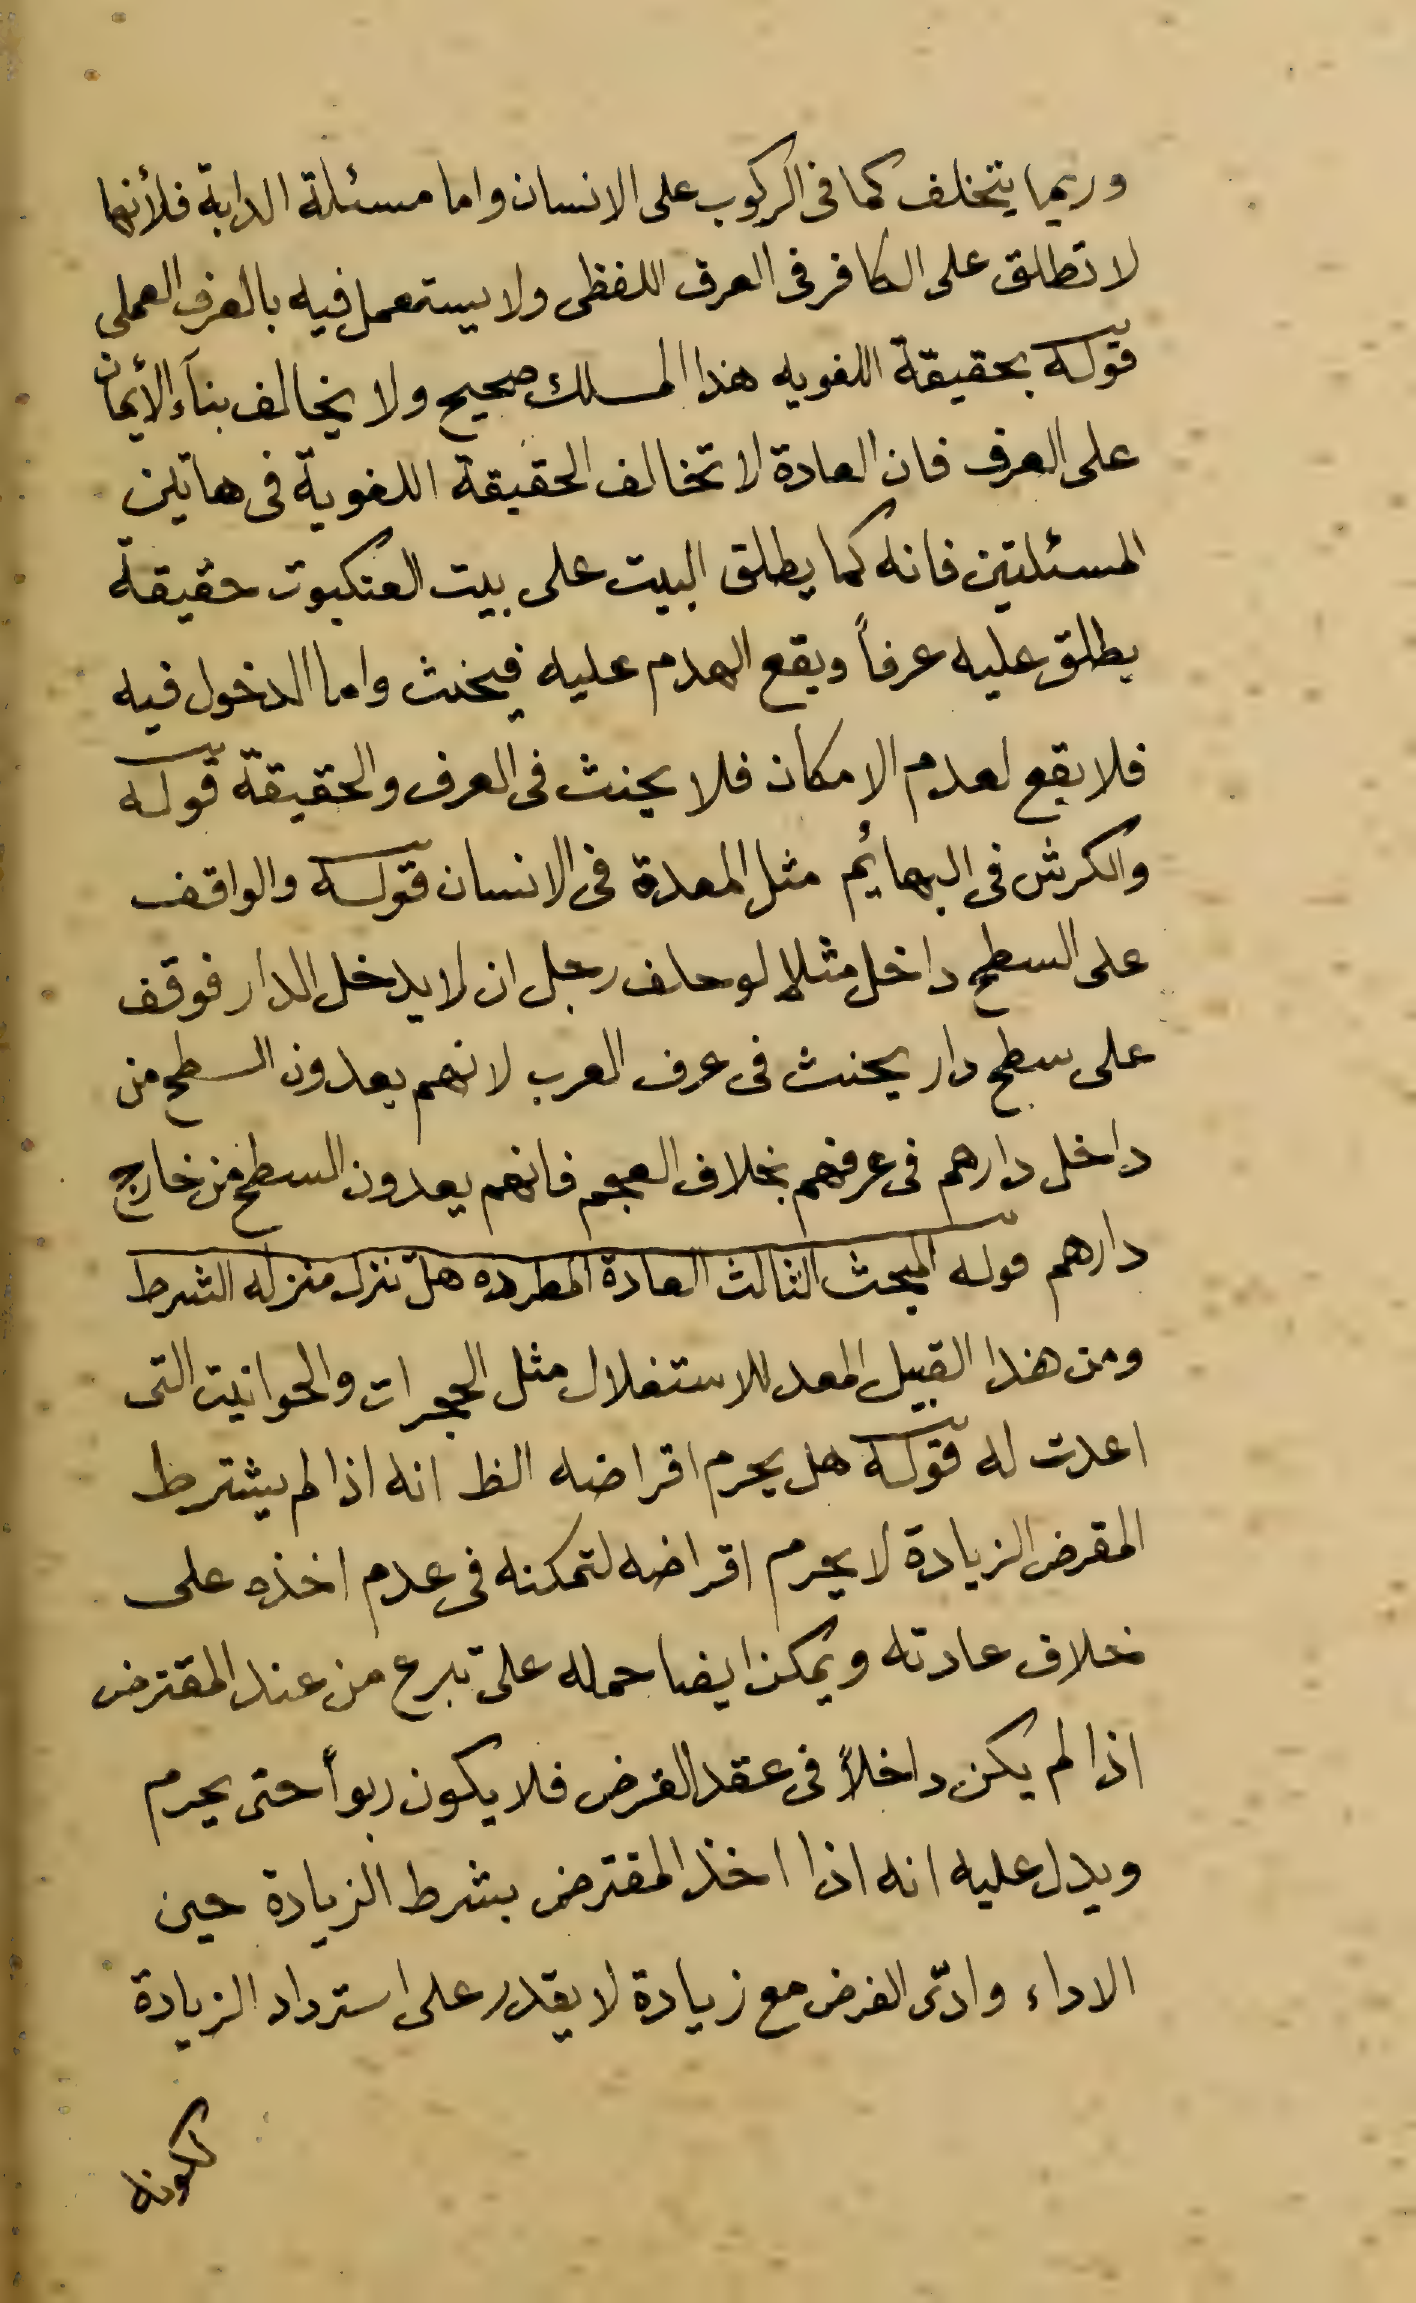 وربما يتخلف كما فى الركوب على الانسان واما مسئلة الدابة فلأنها
لا تطلق على الكافر فى العرف اللفظى ولا يستعمل فيه بالعرف العملى
قوله بحقيقة اللغويه هذا المسلك صحيح ولا يخالف بنآء الأيمان
على العرف فان العادة لا تخالف الحقيقة اللغوية فى هاتين
المسئلتين فانه كما يطلق البيت على بيت العنكبوت حقيقة
يطلق عليه عرفاً ويقع الهدم عليه فيحنث واما الدخول فيه
فلا يقع لعدم الامكان فلا يحنث فى العرف والحقيقة قوله
والكرش فى البهائم مثل المعدة فى الانسان قوله والواقف
على السطح داخل مثلا لو حلف رجل ان لا يدخل الدار فوقف
على سطح دار يحنث فى عرف العرب لانهم يعدون السطح من
داخل دارهم فى عرفهم بخلاف العجم فانهم يعدون السطح من خارج
دارهم قوله المبحث الثالث العادة المطرده هل تنزل منزله الشرط
ومن هذا القبيل المعد للاستغلال مثل الحجرات والحوانيت التى
اعدت له قوله هل يحرم اقراضه الظ انه اذا لم يشترط
المقرض الزيادة لا يحرم اقراضه لتمكنه فى عدم اخذه على
خلاف عادته ويمكن ايضا حمله على تبرع من عند المقترض
اذا لم يكن داخلاً فى عقد القرض فلا يكون ربواً حتى يحرم
ويدل عليه انه اذا اخذ المقترض بشرط الزيادة حين
الاداء وادّى القرض مع زيادة لا يقدر على استرداد الزيادة
لكونه